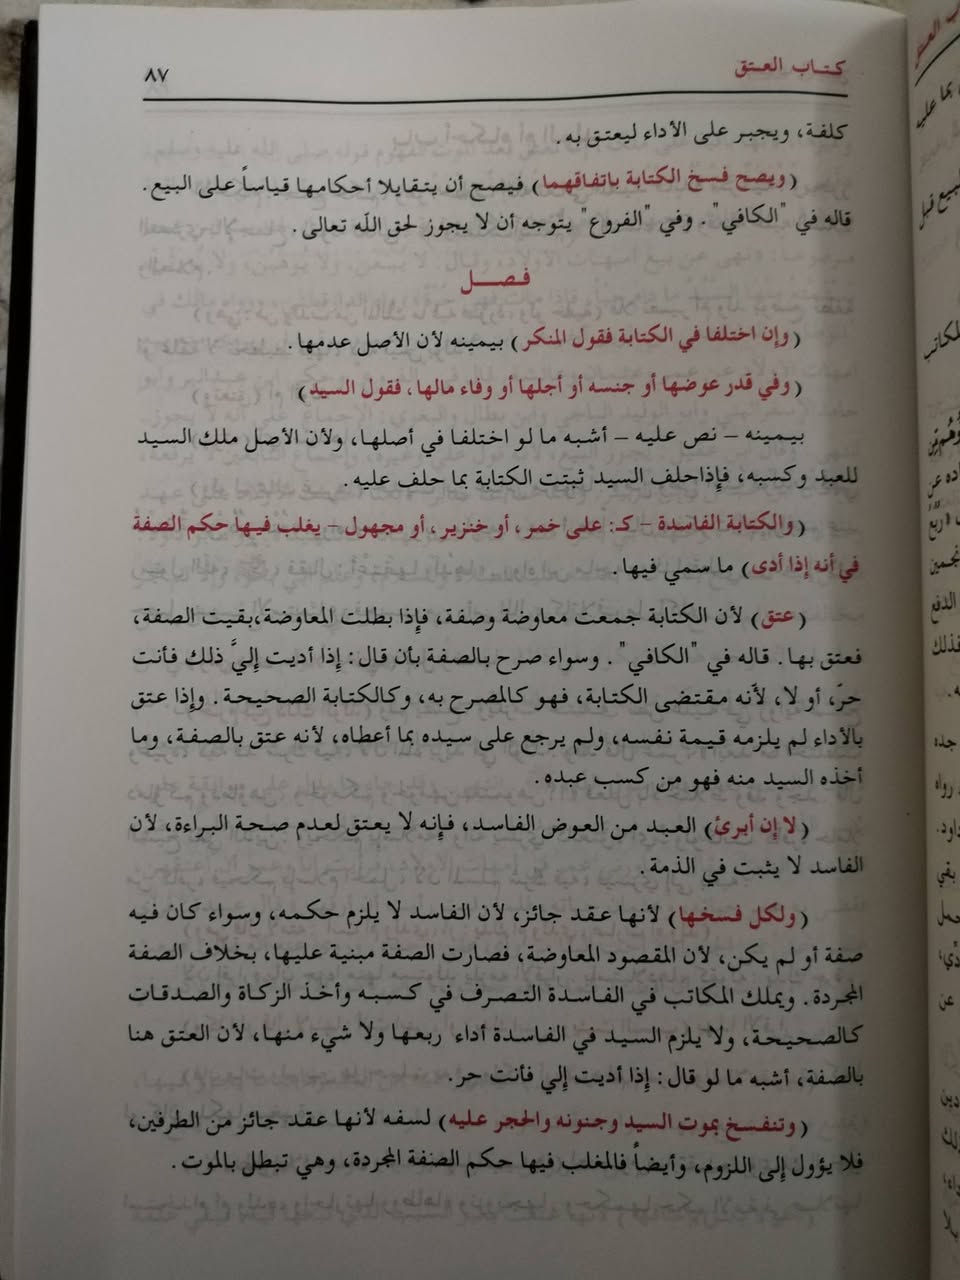 كتاب العتق
٨٧
كلفة، ويجبر على الأداء ليعتق به.
(ويصح فسخ الكتابة باتفاقهما) فيصح أن يتقايلا أحكامها قياساً على البيع.
قاله في "الكافي". وفي "الفروع" يتوجه أن لا يجوز لحق الله تعالى.
فصل
(وإن اختلفا في الكتابة فقول المنكر) بيمينه لأن الأصل عدمها.
(وفي قدر عوضها أو جنسه أو أجلها أو وفاء مالها، فقول السيد)
بيمينه – نص عليه – أشبه ما لو اختلفا في أصلها، ولأن الأصل ملك السيد
للعبد وكسبه، فإذاحلف السيد ثبتت الكتابة بما حلف عليه.
(والكتابة الفاسدة – كـ: على خمر، أو خنزير، أو مجهول – يغلب فيها حكم الصفة
في أنه إذا أدى) ما سمي فيها.
(عتق) لأن الكتابة جمعت معاوضة وصفة، فإذا بطلت المعاوضة،بقيت الصفة،
فعتق بها. قاله في "الكافي". وسواء صرح بالصفة بأن قال: إذا أديت إليَّ ذلك فأنت
حرّ، أو لا، لأنه مقتضى الكتابة، فهو كالمصرح به، وكالكتابة الصحيحة. وإذا عتق
بالأداء لم يلزمه قيمة نفسه، ولم يرجع على سيده بما أعطاه، لأنه عتق بالصفة، وما
أخذه السيد منه فهو من كسب عبده.
(لا إن أبرئ) العبد من العوض الفاسد، فإنه لا يعتق لعدم صحة البراءة، لأن
الفاسد لا يثبت في الذمة.
(ولكل فسخها) لأنها عقد جائز، لأن الفاسد لا يلزم حكمه، وسواء كان فيه
صفة أو لم يكن، لأن المقصود المعاوضة، فصارت الصفة مبنية عليها، بخلاف الصفة
المجردة. ويملك المكاتب في الفاسدة التصرف في كسبه وأخذ الزكاة والصدقات
كالصحيحة، ولا يلزم السيد في الفاسدة أداء ربعها ولا شيء منها، لأن العتق هنا
بالصفة، أشبه ما لو قال: إذا أديت إلي فأنت حر.
(وتنفسخ بموت السيد وجنونه والحجر عليه) لسفه لأنها عقد جائز من الطرفين،
فلا يؤول إلى اللزوم، وأيضاً فالمغلب فيها حكم الصفة المجردة، وهي تبطل بالموت.